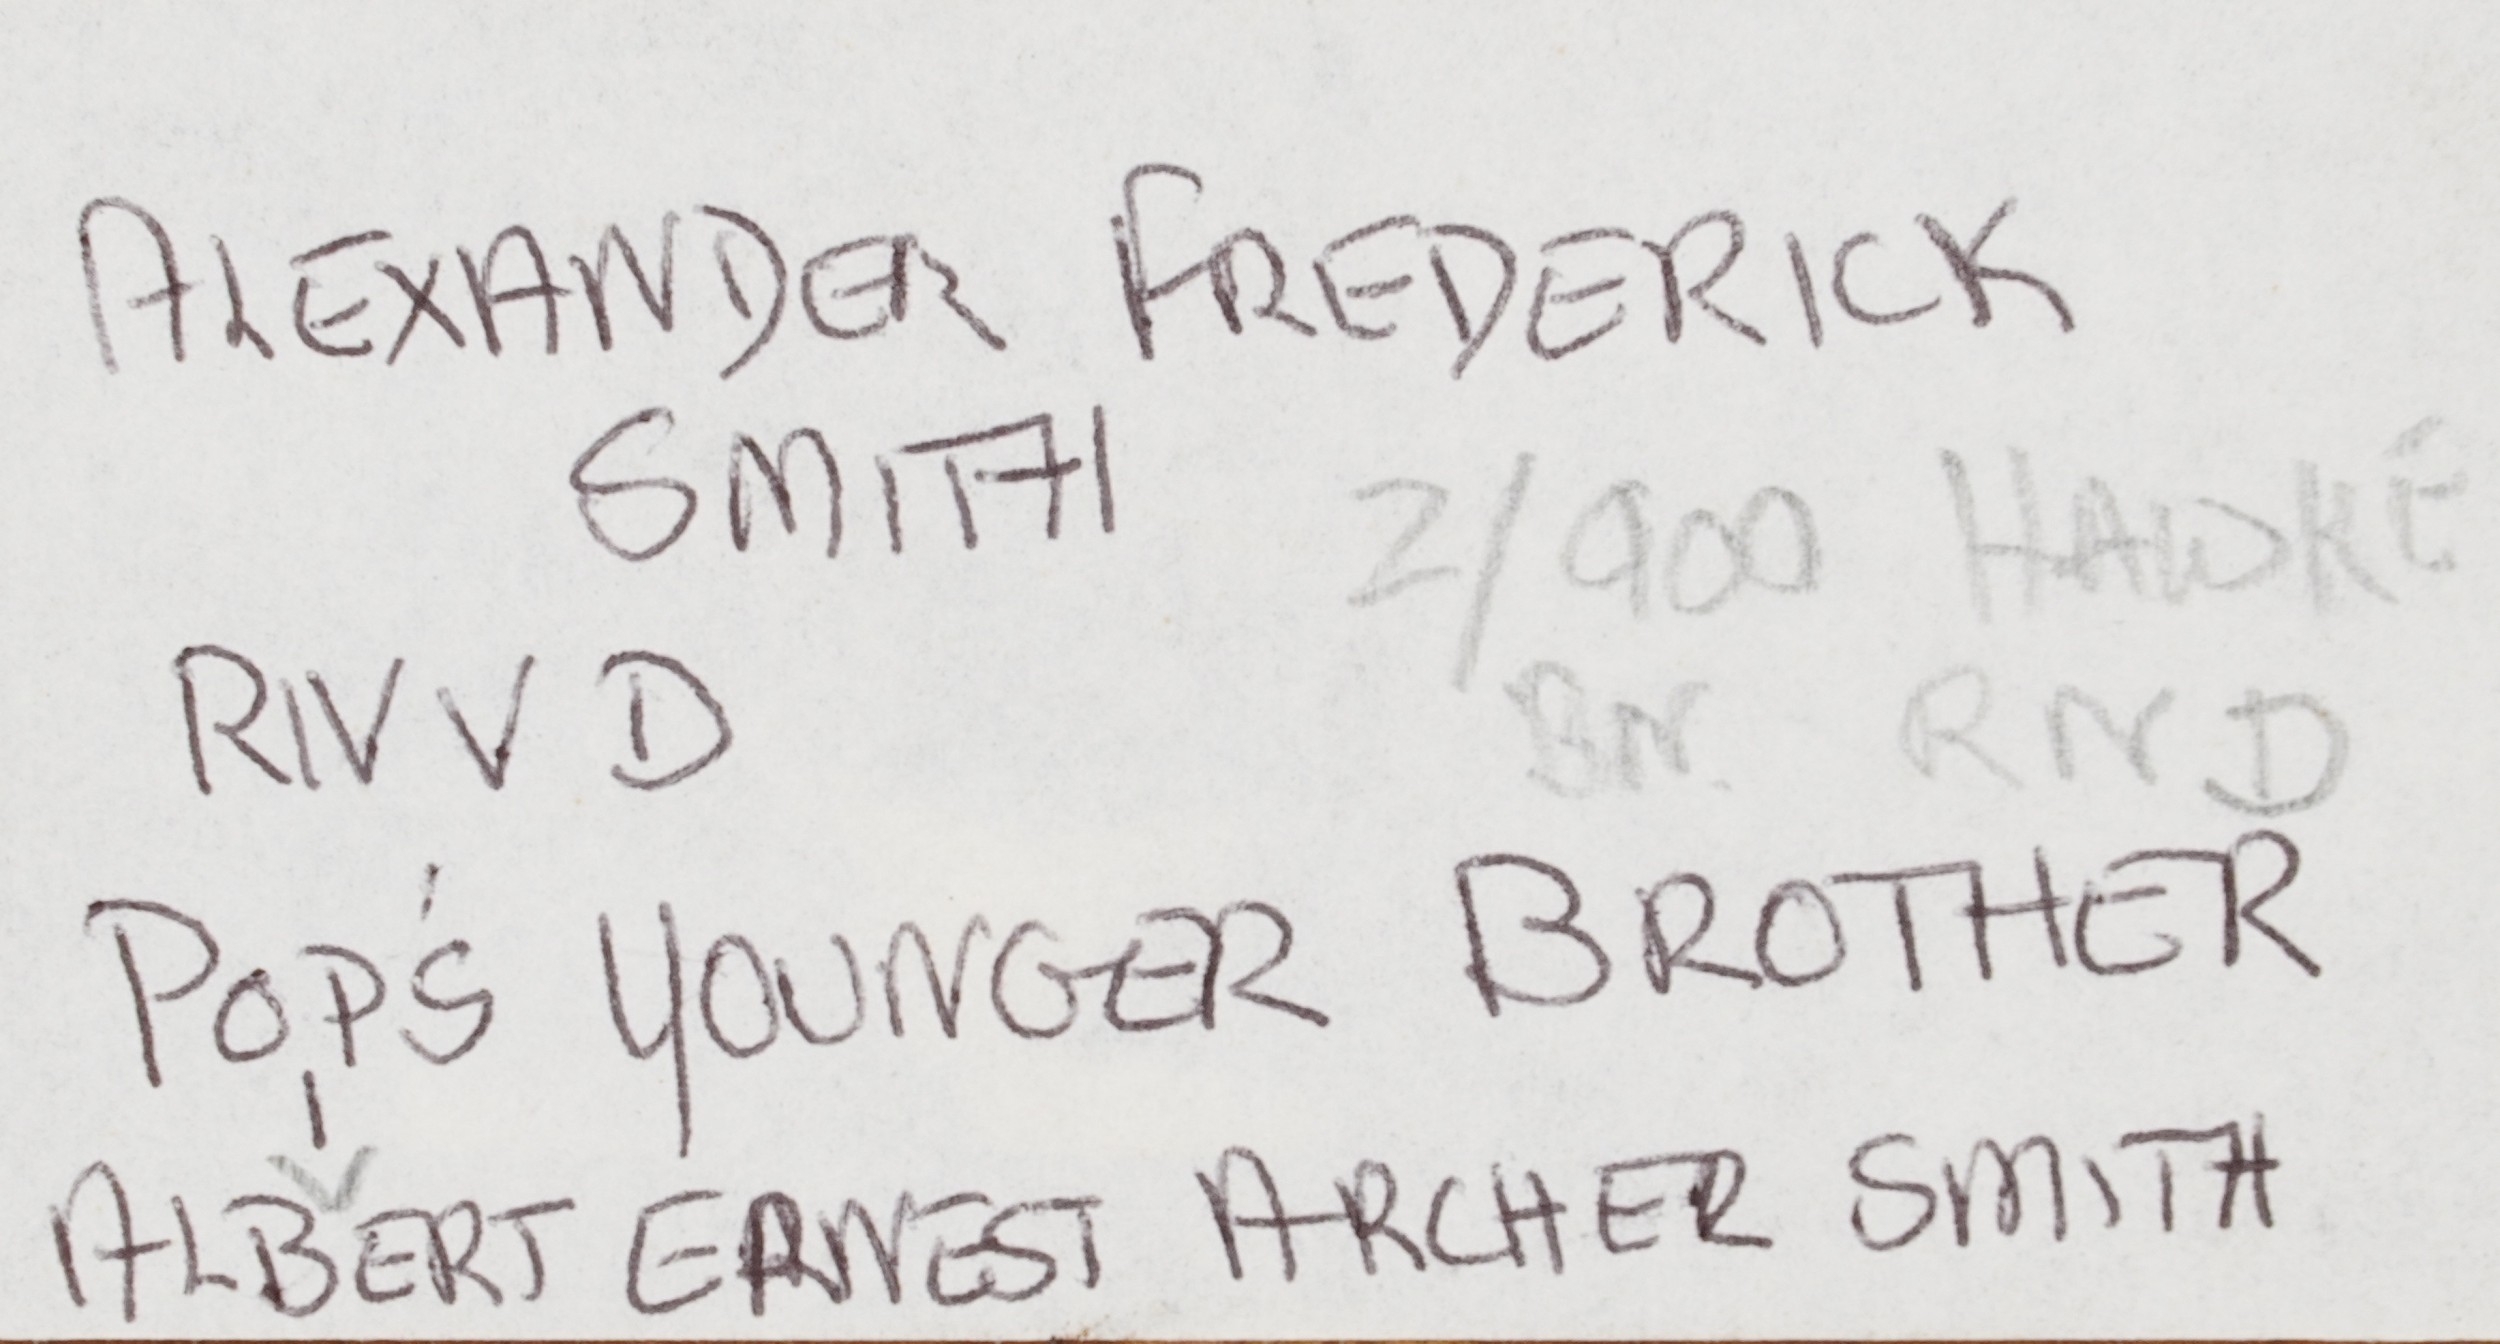 ALEXANDER FREDERICK
SMITH
Z/900 HAWKE
RNVD
BN. RND
POP'S YOUNGER BROTHER
ALBERT ERNEST ARCHER SMITH